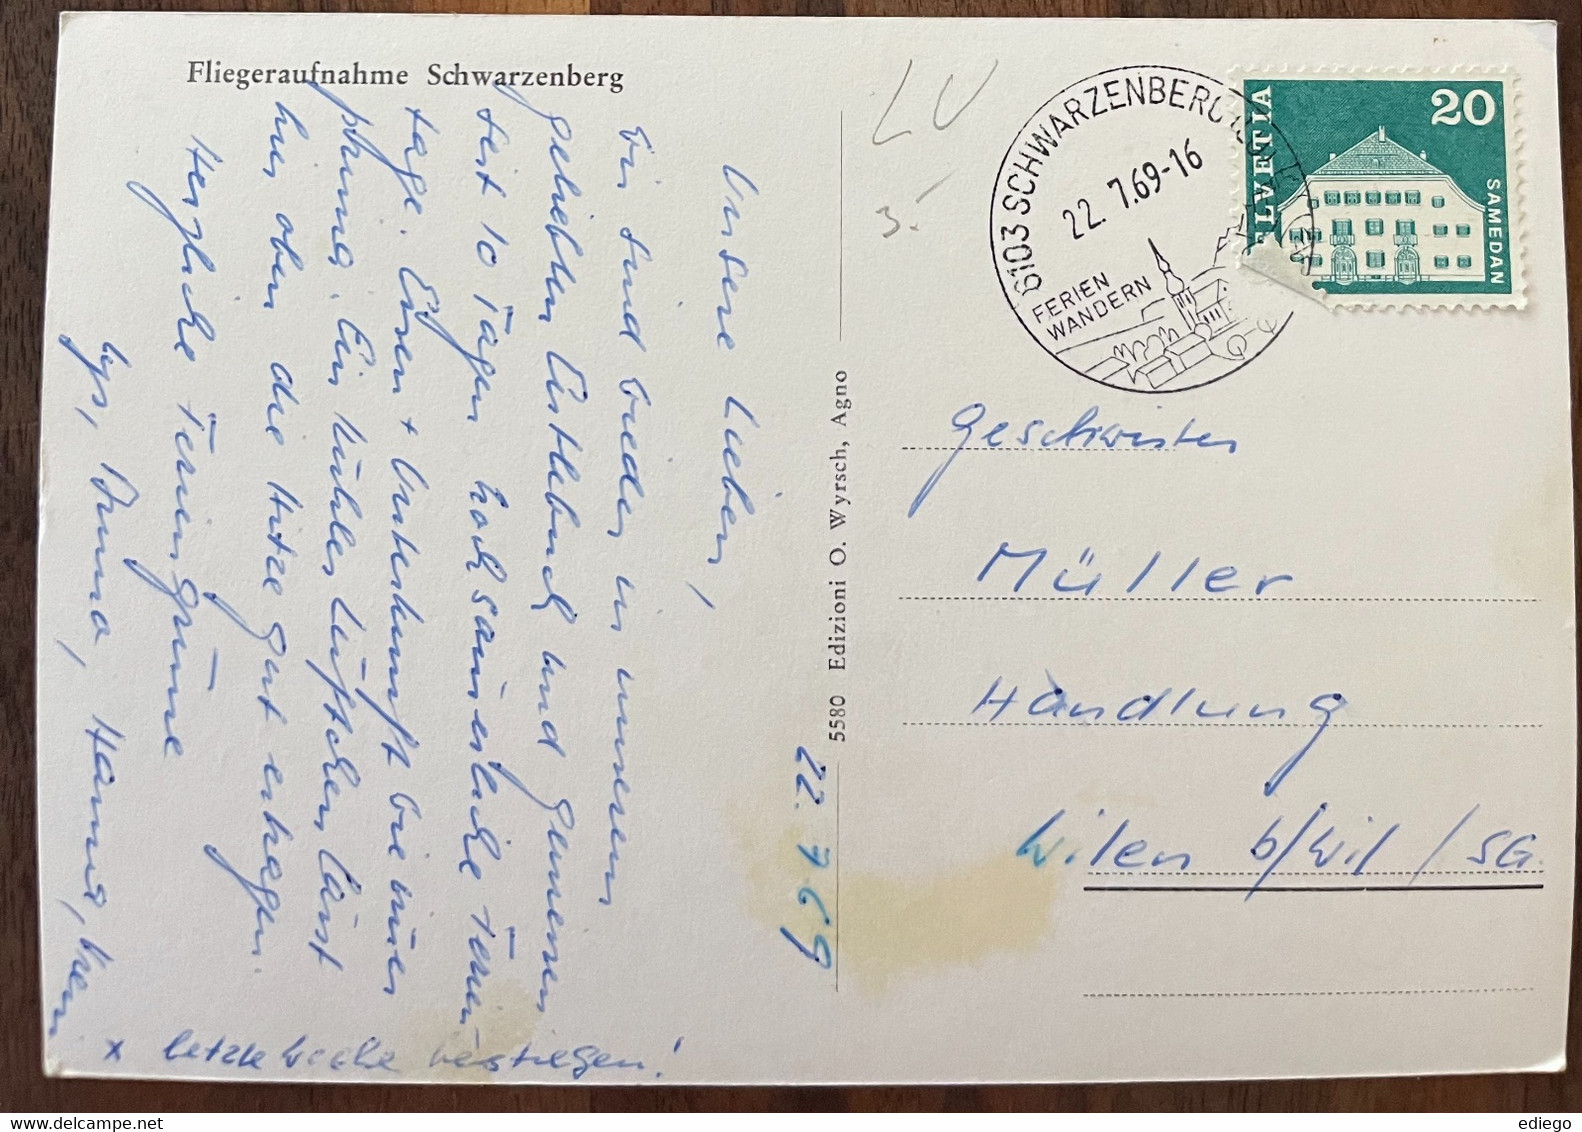 Fliegeraufnahme Schwarzenberg
Unsere Lieben,
Wir sind wieder in unserem
geliebten Entlebuch und geniessen
seit 10 Tagen hochsommerliche Ferien-
tage. Essen + Unterkunft wie immer
prima. Ein kühles Lüftchen lässt
hier oben die Hitze gut ertragen.
Herzliche Feriengrüsse
Bruno, Hanna,
x letzte Woche bestiegen!
22.7.69
5580 Edizioni O. Wyrsch, Agno
LU
3.-
6103 SCHWARZENBERG
22. 7.69-16
FERIEN
WANDERN
HELVETIA
20
SAMEDAN
Geschwister
Müller
Handlung
Wilen b/Wil / SG.
www.delcampe.net
ediego